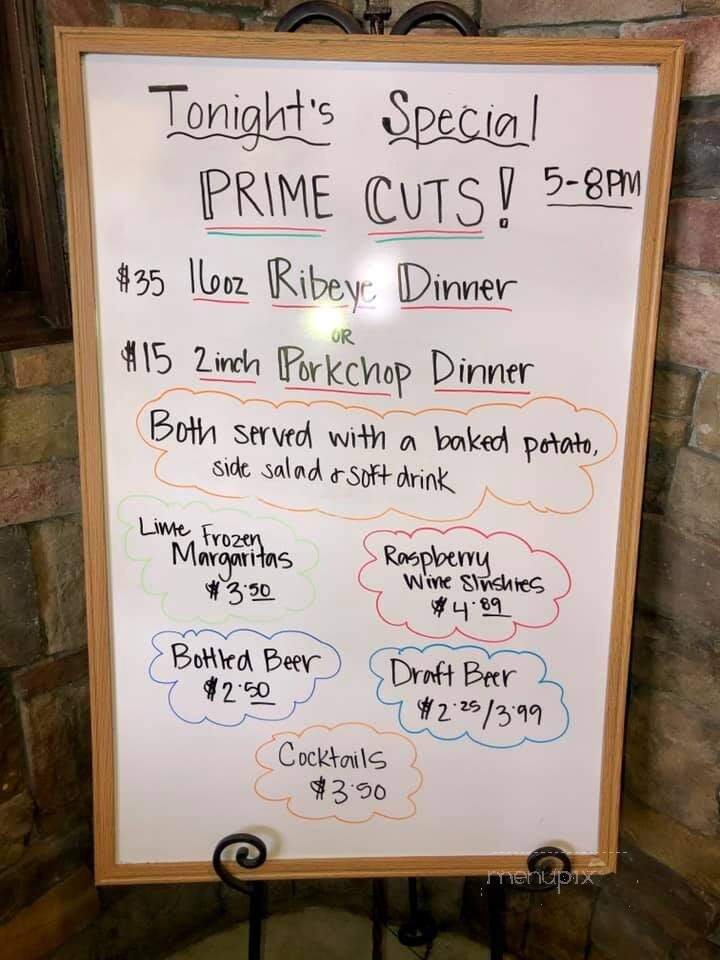 Tonight's Special
PRIME CUTS! 5-8PM
$35 16oz Ribeye Dinner
OR
$15 2inch Porkchop Dinner
Both served with a baked potato,
side salad & soft drink
Lime Frozen
Margaritas
$3.50
Raspberry
Wine Slushies
$4.89
Bottled Beer
$2.50
Draft Beer
$2.25/3.99
Cocktails
$3.50
menupix